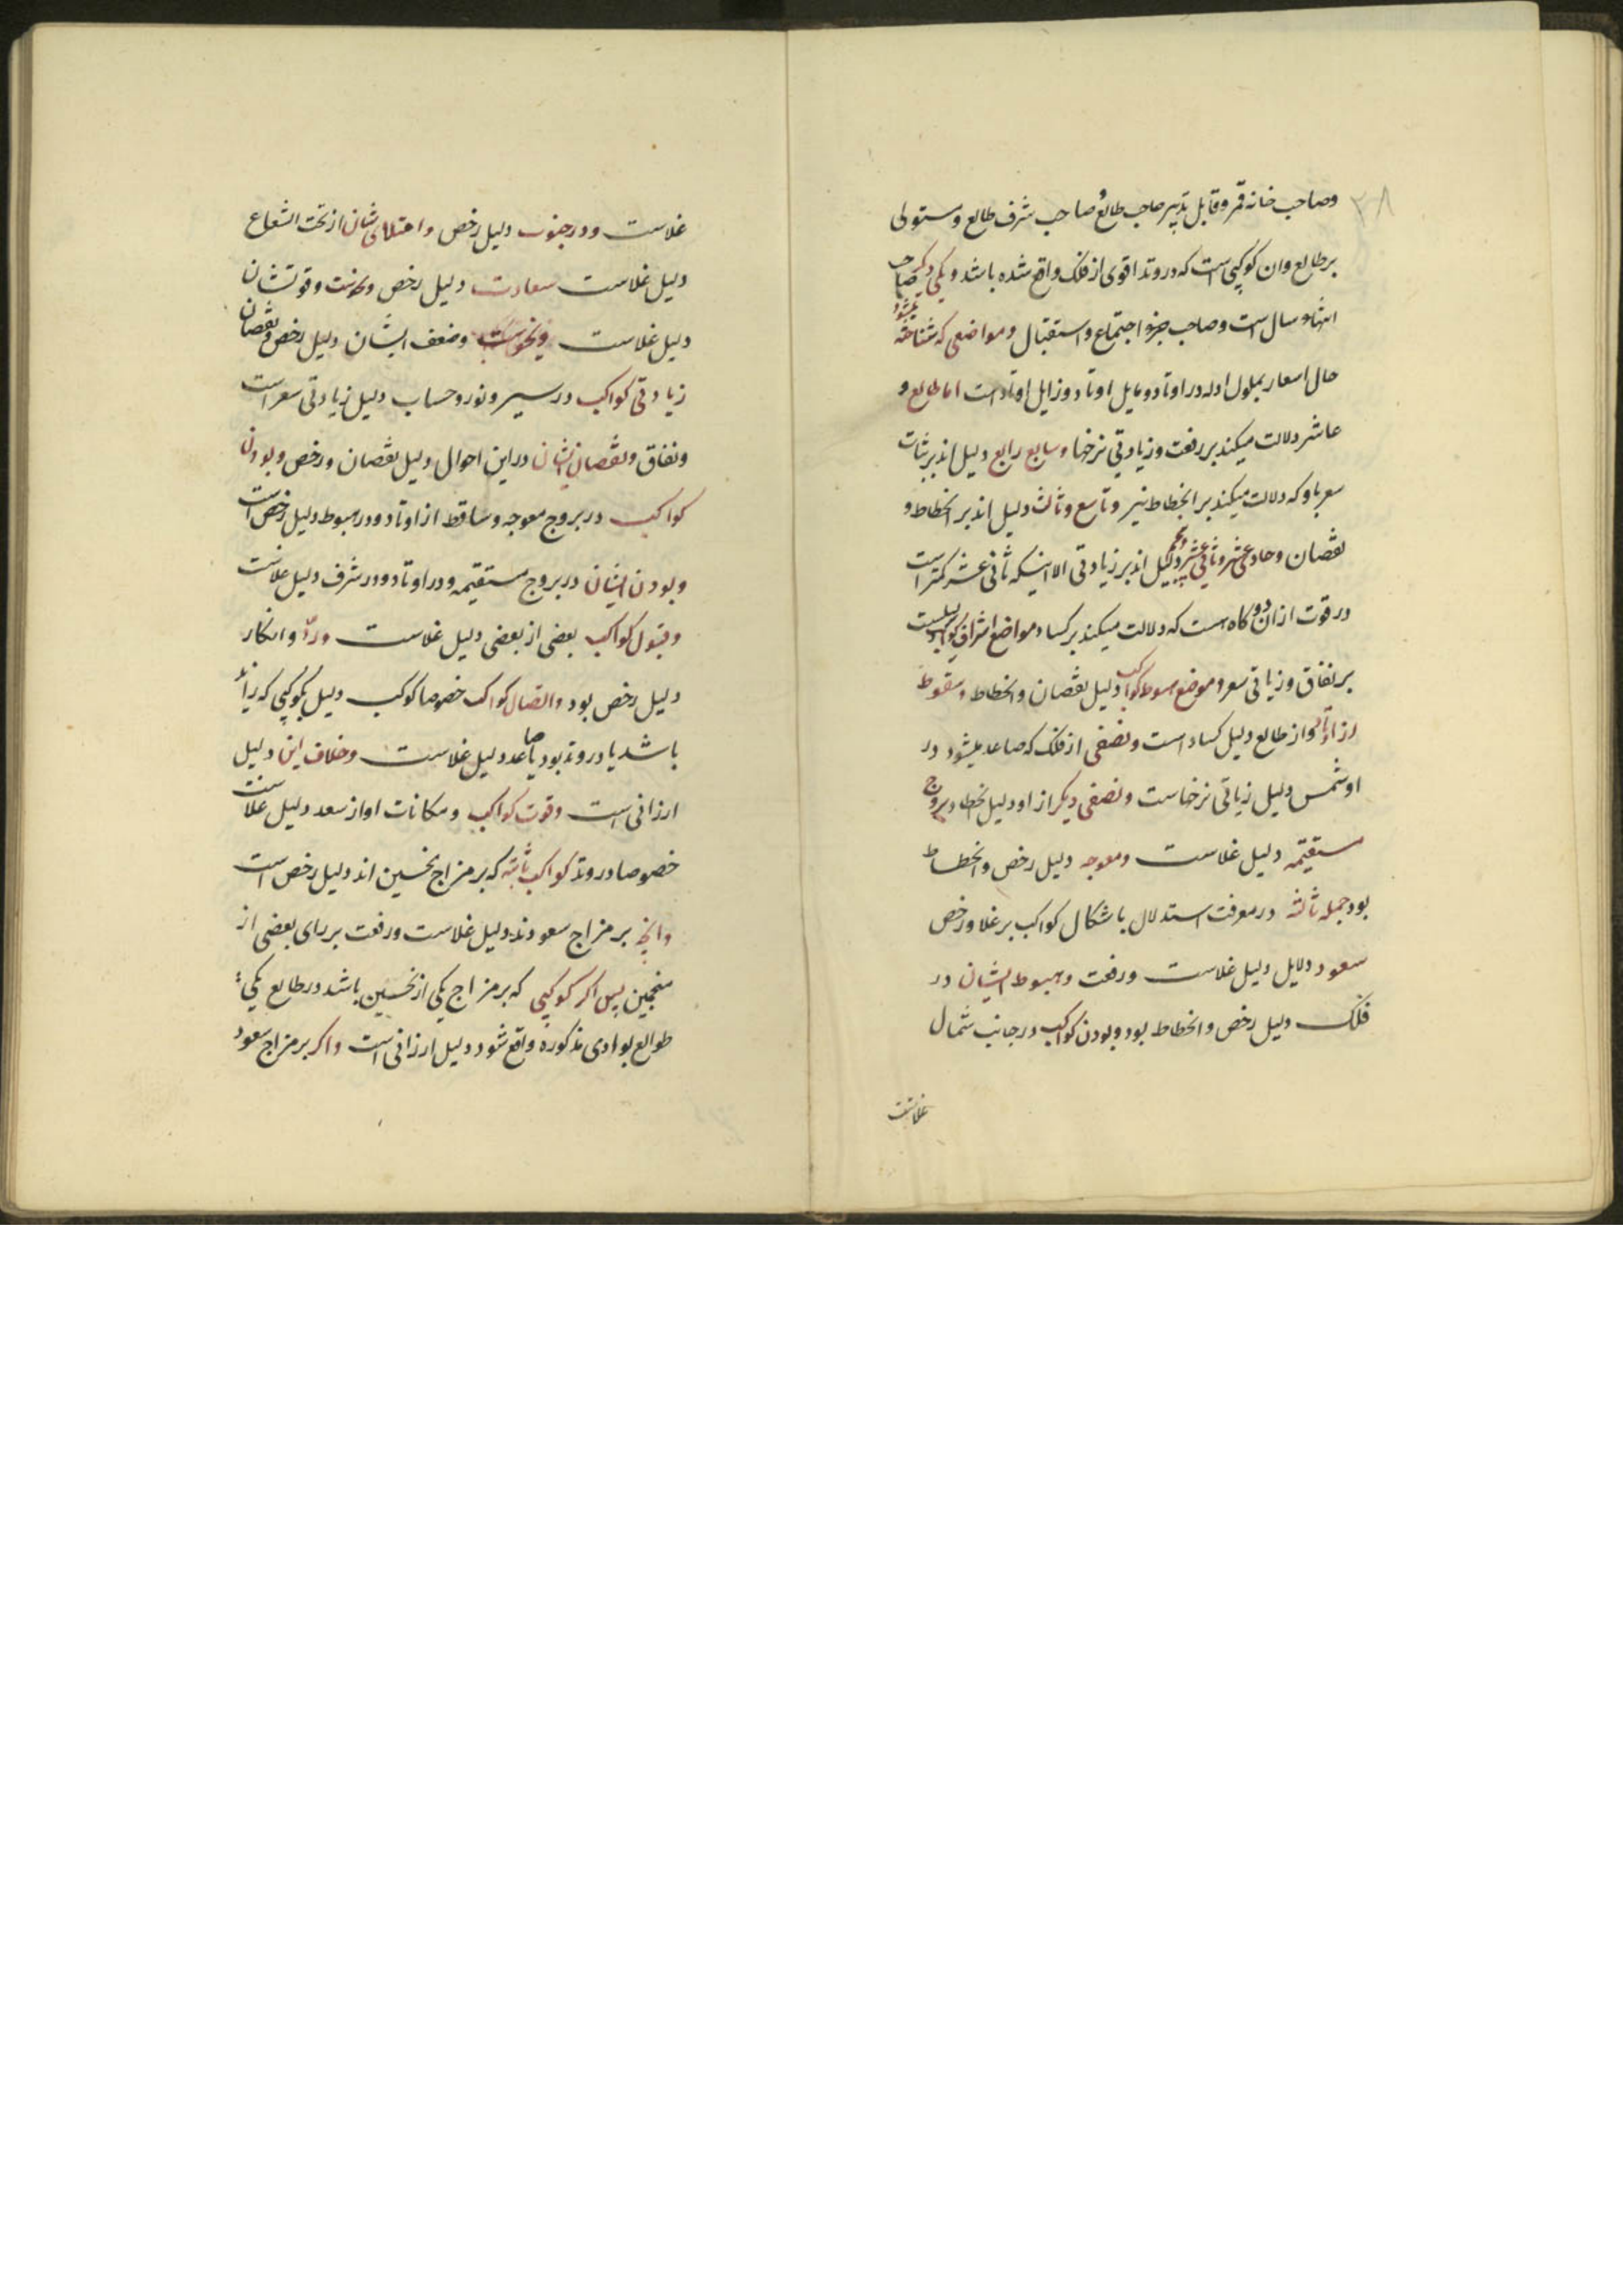 ۳۸
وصاحب خانه قمر وقابل تدبیر صاحب طالع و صاحب شرف طالع ومستولی
بر طالع وان کوکبی است که در وتد اقوی از فلک واقع شده باشد و یکی دیگر صاحب
انتهاء سال است وصاحب جزو اجتماع و استقبال ومواضعی که شناخته میشود
حال اسعار بحلول ادله در اوتاد ومایل اوتاد وزایل اوتاد است اما طالع و
عاشر دلالت میکند بر رفعت وزیادتی نرخها وسابع رابع دلیل اند بر ثبات
سعر باو که دلالت میکند بر انحطاط نیز وتاسع وثالث دلیل اند بر انحطاط و
نقصان وحادی عشر وثانی عشر وپنجم دلیل اند بر زیادتی الا اینکه ثانی عشر کمتر است
در قوت ازان دو وگاه هست که دلالت میکند بر کساد ومواضع اشراف کواکب دلیلست
بر نفاق وزیاتی سعر و موضع هبوط کواکب دلیل نقصان وانحطاط وسقوط
از اوتاد واز طالع دلیل کساد است ونصفی از فلک که صاعد میشود در
او شمس دلیل زیاتی نرخهاست ونصفی دیگر از او دلیل انحطاط وبروج
مستقیمه دلیل غلاست ومعوجه دلیل رخص وانحطاط
بود جمله ثالثه در معرفت استدلال باشکال کواکب بر غلا ورخص
سعود دلایل دلیل غلاست ورفعت وهبوط ایشان در
فلک دلیل رخص وانحطاط بود وبودن کواکب در جانب شمال
غلاست
غلاست ودر جنوب دلیل رخص واعتلای شان از تحت الشعاع
دلیل غلاست سعادت دلیل رخص ونحوست وقوتشان
دلیل غلاست ونحوست وضعف ایشان دلیل رخص ونقصان
زیادتی کواکب در سیر ونور وحساب دلیل زیادتی سعر است
ونفاق ونقصان ایشان در این احوال دلیل نقصان ورخص وبودن
کواکب در بروج معوجه وساقط از اوتاد ودر هبوط دلیل رخص است
وبودن ایشان در بروج مستقیمه ودر اوتاد ودر شرف دلیل غلاست
وقبول کواکب بعضی از بعضی دلیل غلاست وردّ وانکار
دلیل رخص بود واتصال کواکب خصوصا کوکب دلیل بکوکبی که زائد
باشد یا در وتد بود یا صاعد دلیل غلاست وخلاف این دلیل
ارزانی است وقوت کواکب ومکانات او از سعد دلیل غلاست
خصوصا در وتد کواکب ثابته که بر مزاج نحسین اند دلیل رخص است
وانچه بر مزاج سعودند دلیل غلاست ورفعت بر رای بعضی از
منجمین پس اگر کوکبی که بر مزاج یکی از نحسین باشد در طالع یکی از
طوالع بوادی مذکوره واقع شود دلیل ارزانی است واگر بر مزاج سعود